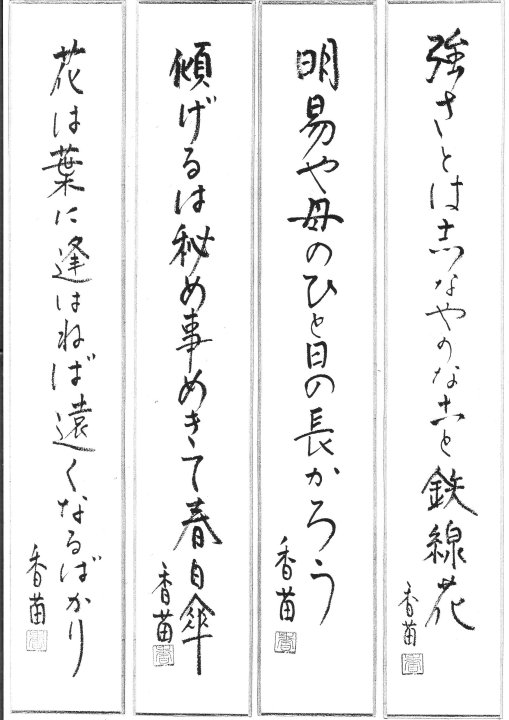 強さとは志なやかなこと鉄線花
香苗
明易や母のひと日の長かろう
香苗
傾げるは秘め事めきて春日傘
香苗
花は葉に逢はねば遠くなるばかり
香苗